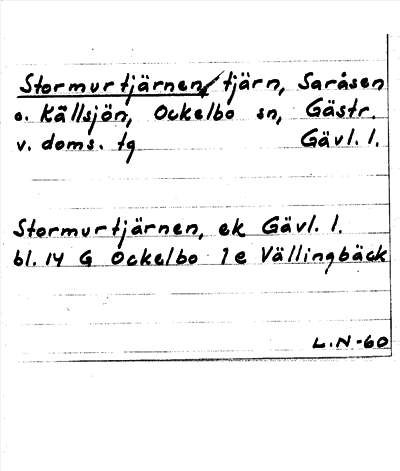 Stormurtjärnen, tjärn, Saråsen
o. Källsjön, Ockelbo sn, Gästr.
v. doms. tg Gävl. l.
Stormurtjärnen, ek Gävl. l.
bl. 14 G Ockelbo 1e Vällingbäck
L.N-60